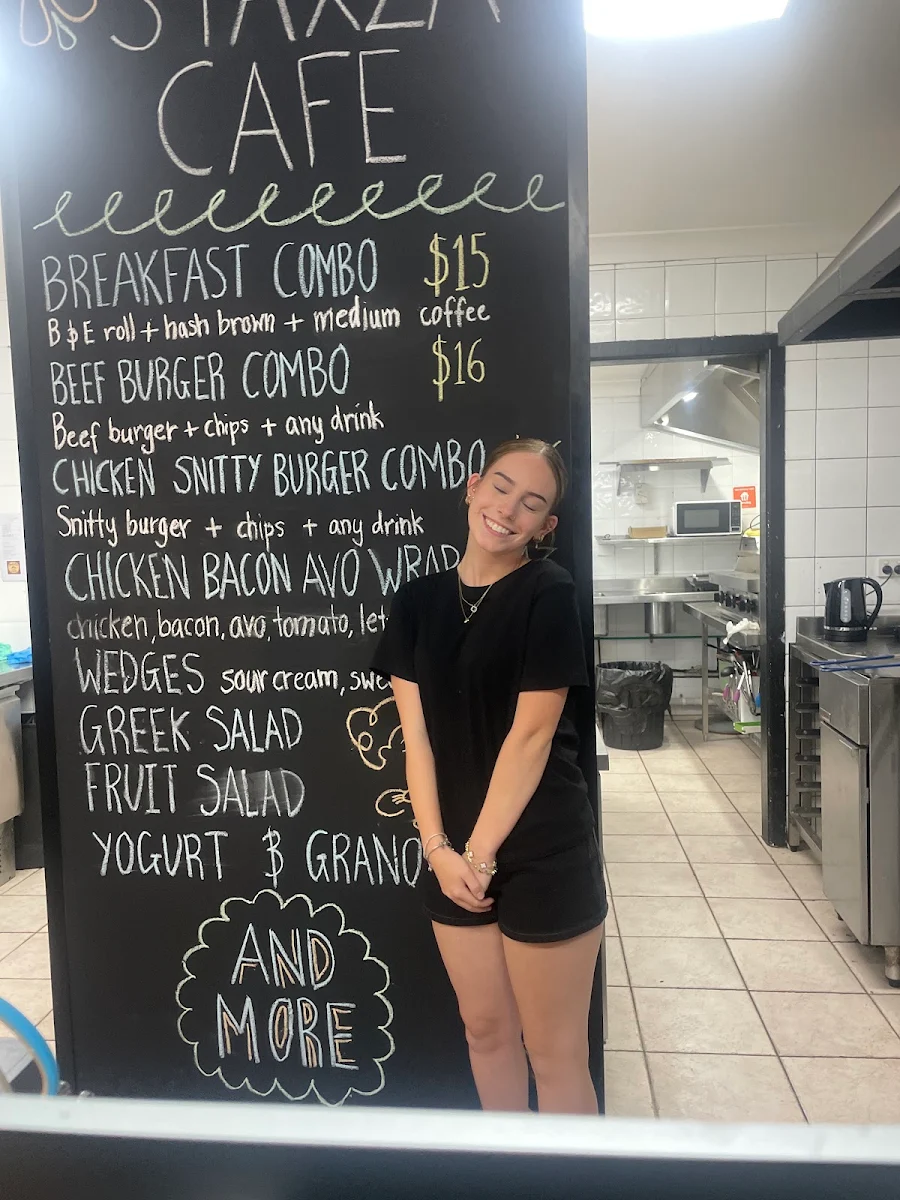 CAFE
BREAKFAST COMBO $15
B & E roll + hash brown + medium coffee
BEEF BURGER COMBO $16
Beef burger + chips + any drink
CHICKEN SNITTY BURGER COMBO
Snitty burger + chips + any drink
CHICKEN BACON AVO WRAP
chicken, bacon, avo, tomato,
WEDGES sour cream,
GREEK SALAD
FRUIT SALAD
YOGURT &
AND
MORE